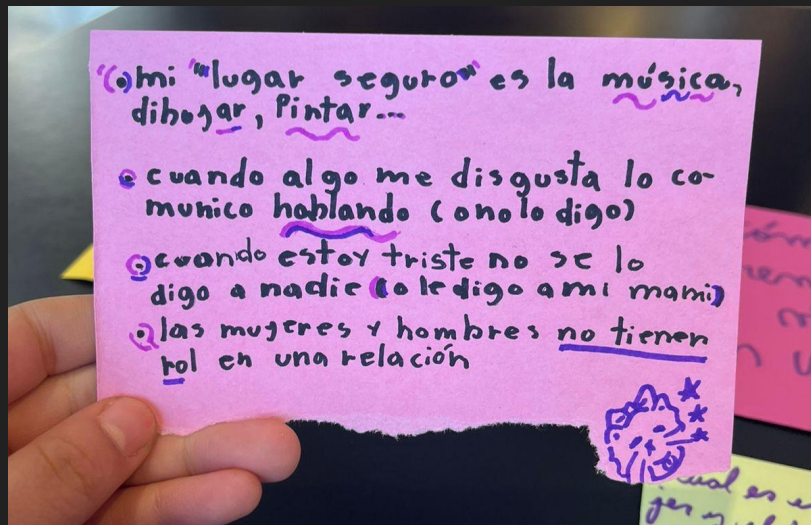 mi "lugar seguro" es la música,
dibujar, Pintar...
cuando algo me disgusta lo co-
munico hablando (o no lo digo)
cuando estoy triste no se lo
digo a nadie (o le digo a mi mami)
las mujeres y hombres no tienen
rol en una relación